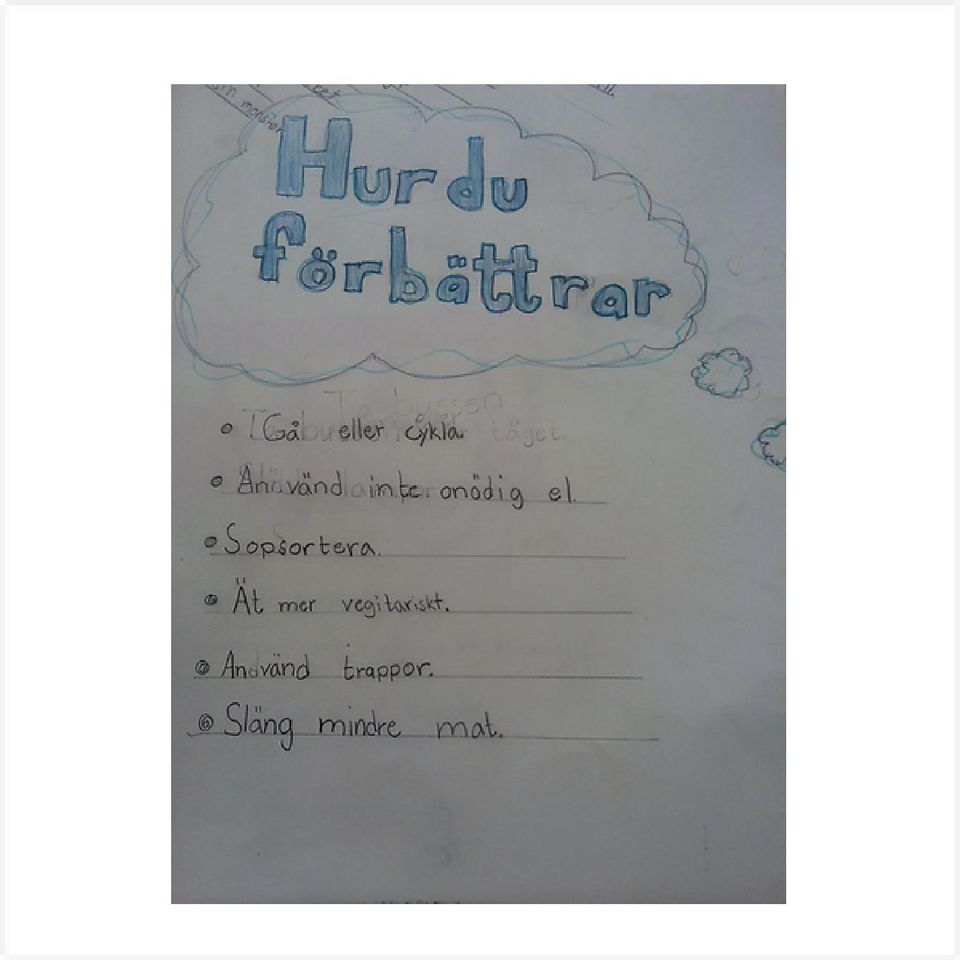 Hur du
förbättrar
Gå eller cykla.
Använd inte onödig el.
Sopsortera.
Ät mer vegitariskt.
Använd trappor.
Släng mindre mat.